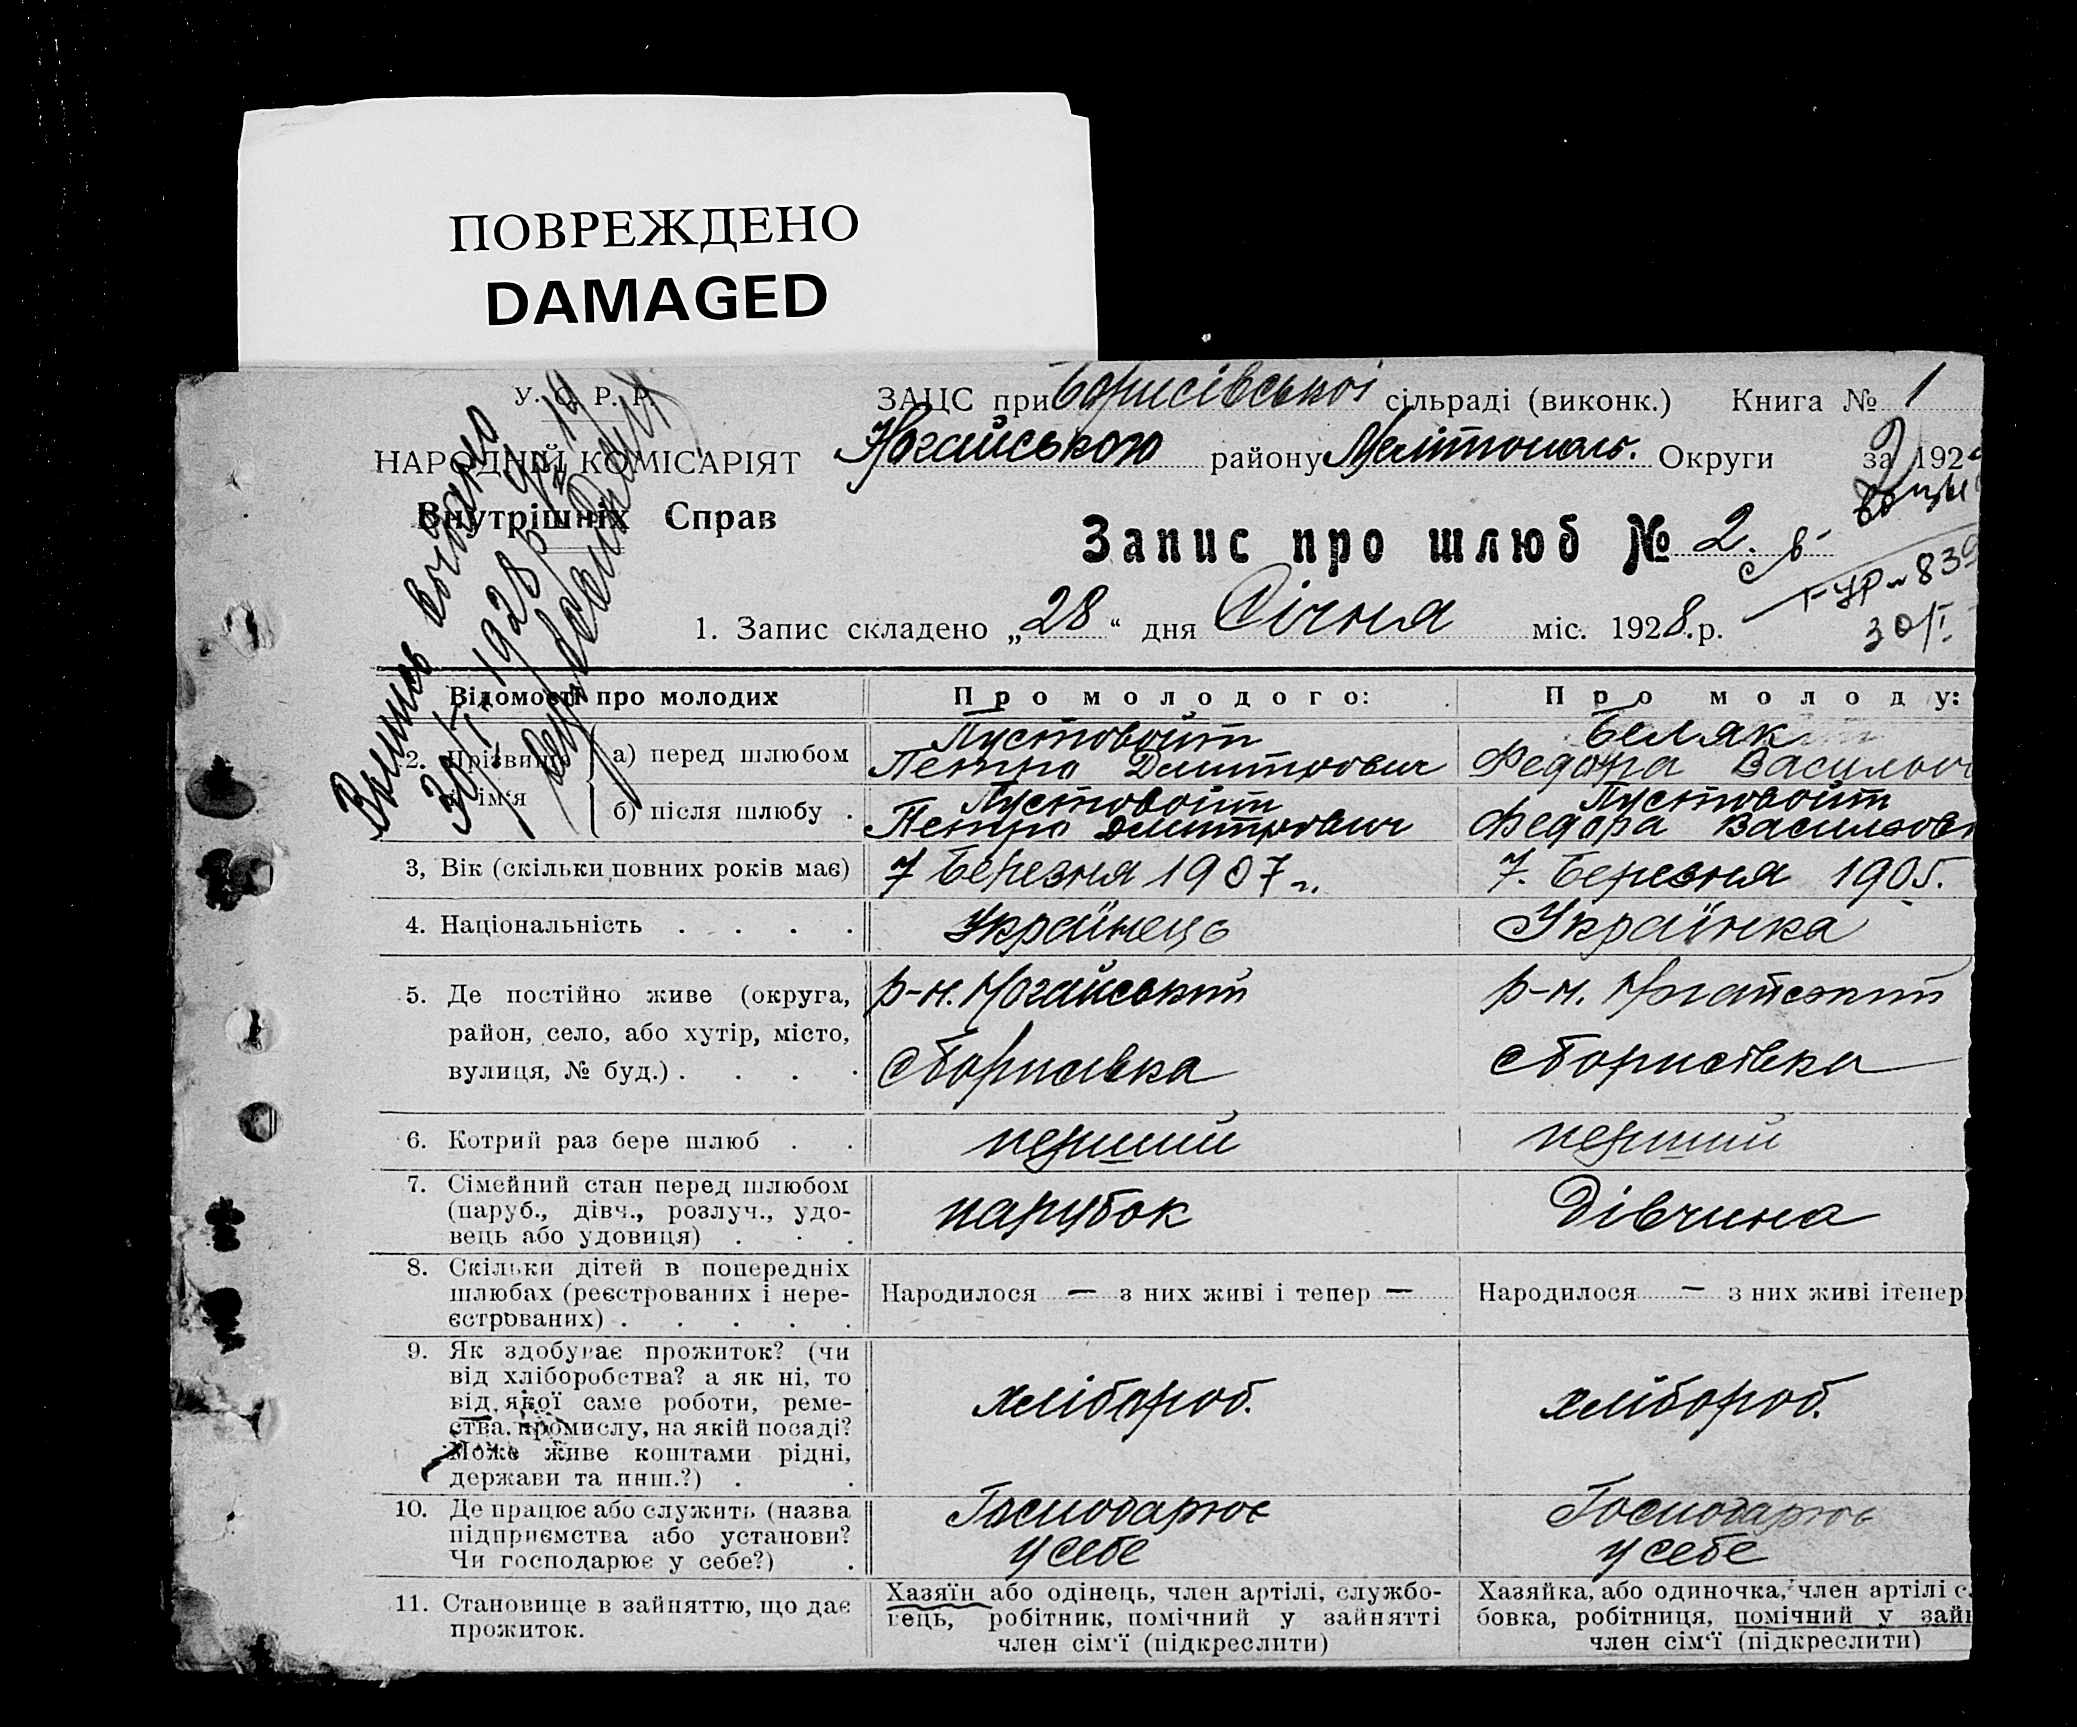 ПОВРЕЖДЕНО
DAMAGED
У. С. Р. Р.
НАРОДНІЙ КОМІСАРІЯТ
Внутрішніх Справ
ЗАЦС при Борисівської сільраді (виконк.) Книга № 1
Ногайського району Мелітополь. Округи за 192
Запис про шлюб № 2.
839
30/I
1. Запис складено „28“ дня Січня міс. 1928.р.
Выпись
30/I 1928
Відомості про молодих
Про молодого:
Про молоду:
2. Прізвище й ім‘я
а) перед шлюбом
Пустовойт
Петро Дмитрович
Беляк
Федора Васильов
б) після шлюбу .
Пустовойт
Петро Дмитрович
Пустовойт
Федора Васильов
3, Вік (скільки повних років має)
7 Березня 1907 г.
7. Березня 1905.
4. Національність . . . .
Українець
Українка
5. Де постійно живе (округа,
район, село, або хутір, місто,
вулиця, № буд.) . . . .
р-н. Ногайський
с Борисівка
р-н. Ногайский
с Борисівка
6. Котрий раз бере шлюб . .
перший
перший
7. Сімейний стан перед шлюбом
(паруб., дівч., розлуч., удо-
вець або удовиця) . . .
парубок
Дівчина
8. Скільки дітей в попередніх
шлюбах (реєстрованих і нере-
єстрованих) . . . . .
Народилося — з них живі і тепер —
Народилося — з них живі ітепер
9. Як здобуває прожиток? (чи
від хліборобства? а як ні, то
від якої саме роботи, реме-
ства, промислу, на якій посаді?
Може живе коштами рідні,
держави та инш.?) . .
хлібороб.
хлібороб.
10. Де працює або служить (назва
підприємства або установи?
Чи господарює у себе?) .
Господарює
у себе
Господарює
у себе
11. Становище в зайняттю, що дає
прожиток.
Хазяїн або одінець, член артілі, службо-
вець, робітник, помічний у зайнятті
член сім‘ї (підкреслити)
Хазяйка, або одиночка, член артілі с
бовка, робітниця, помічний у зай
член сім‘ї (підкреслити)